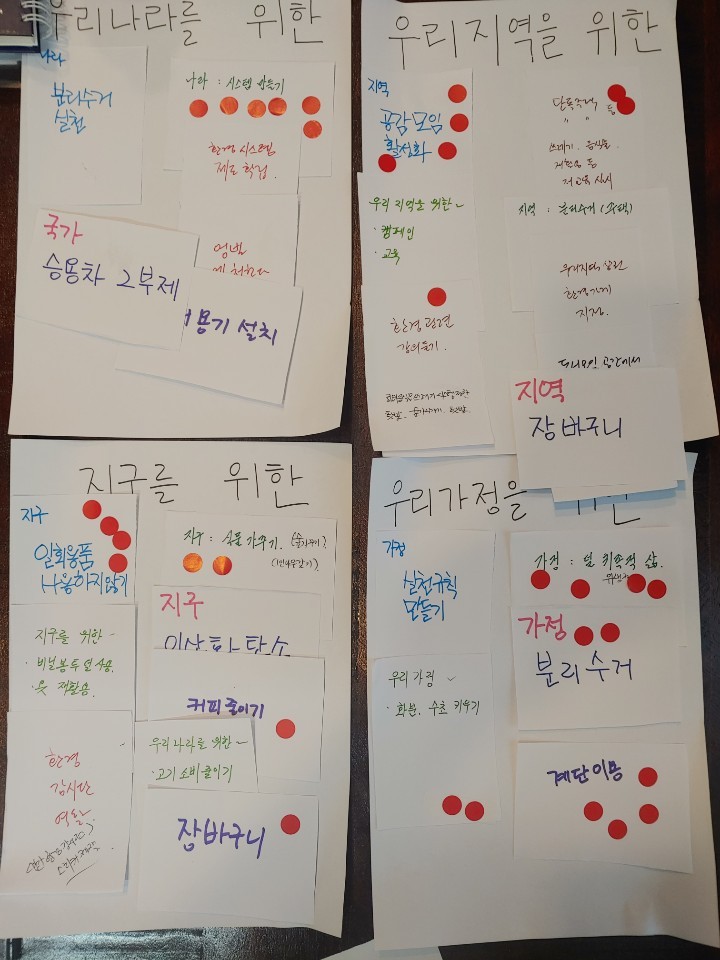 우리나라를 위한
나라
분리수거
실천
나라 : 시스템 만들기
환경 시스템
제도 확립.
엄벌
에 처한다
국가
승용차 2부제
용기 설치
우리지역을 위한
지역
공감모임
활성화
단독주택
" " 등
쓰레기. 음식물.
재활용 등
우리 지역을 위한
· 캠페인
· 교육
지역 : 분리수거 (주택)
우리지역 상점
환경가게
지정.
환경 관련
강의듣기.
두니모인 공간에서
지역
장바구니
지구를 위한
지구
일회용품
사용하지않기
지구 : 식물 가꾸기. (숲가꾸기)
지구를 위한
· 비닐봉투 덜 사용.
· 옷 재활용.
지구
이산화탄소
커피줄이기
우리나라를 위한
· 고기 소비 줄이기
환경
감시단
역할.
장바구니
우리가정을 위한
가정
실천규칙
만들기
가정 : 덜 키즈적 삶.
가정
분리수거
우리 가정
· 화분. 수초 키우기
계단이용